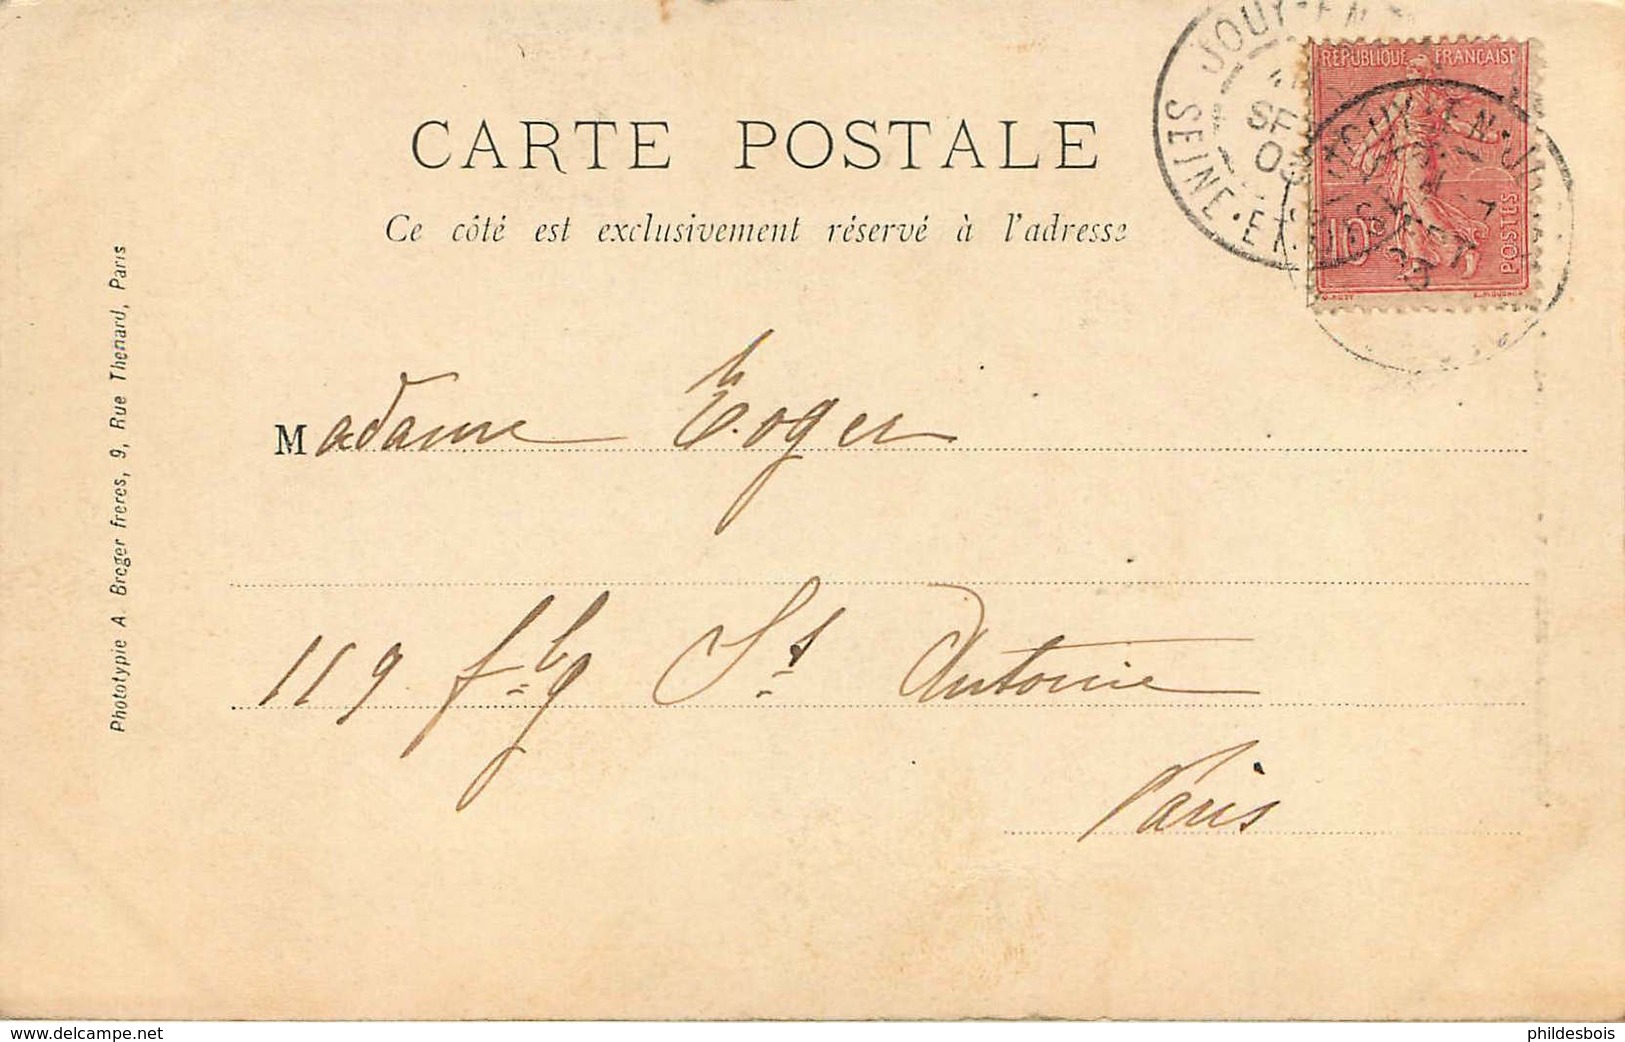 JOUY-EN
SEINE-ET-
SE
03
REPUBLIQUE FRANÇAISE
JOUY-EN-J
SEPT
03
10c
POSTES
CARTE POSTALE
Ce côté est exclusivement réservé à l'adresse
Phototypie A. Breger freres, 9, Rue Thenard, Paris
Madame
119 fbg St Antoine
Paris
www.delcampe.net
phildesbois